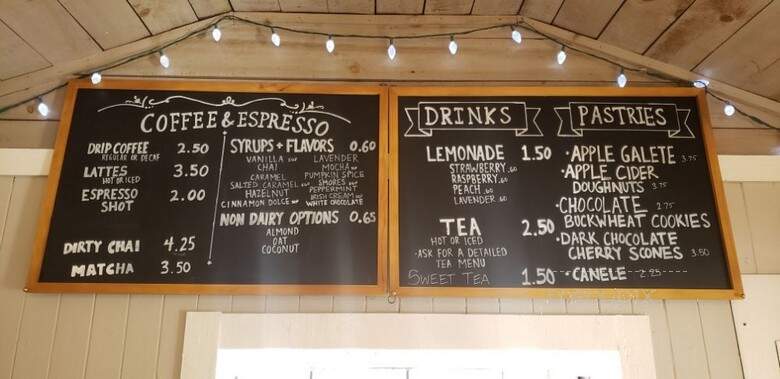 COFFEE & ESPRESSO
DRIP COFFEE 2.50
REGULAR OR DECAF
LATTES 3.50
HOT OR ICED
ESPRESSO 2.00
SHOT
DIRTY CHAI 4.25
MATCHA 3.50
SYRUPS + FLAVORS 0.60
VANILLA
CHAI
CARAMEL
SALTED CARAMEL
HAZELNUT
CINNAMON DOLCE
LAVENDER
MOCHA
PUMPKIN SPICE
SMORES
PEPPERMINT
IRISH CREAM
WHITE CHOCOLATE
NON DAIRY OPTIONS 0.65
ALMOND
OAT
COCONUT
DRINKS
LEMONADE 1.50
STRAWBERRY .60
RASPBERRY .60
PEACH .60
LAVENDER .60
TEA 2.50
HOT OR ICED
-ASK FOR A DETAILED
TEA MENU
SWEET TEA 1.50
PASTRIES
·APPLE GALETE 3.75
·APPLE CIDER
DOUGHNUTS 3.75
·CHOCOLATE 2.75
BUCKWHEAT COOKIES
·DARK CHOCOLATE
CHERRY SCONES 3.50
·CANELE 2.25